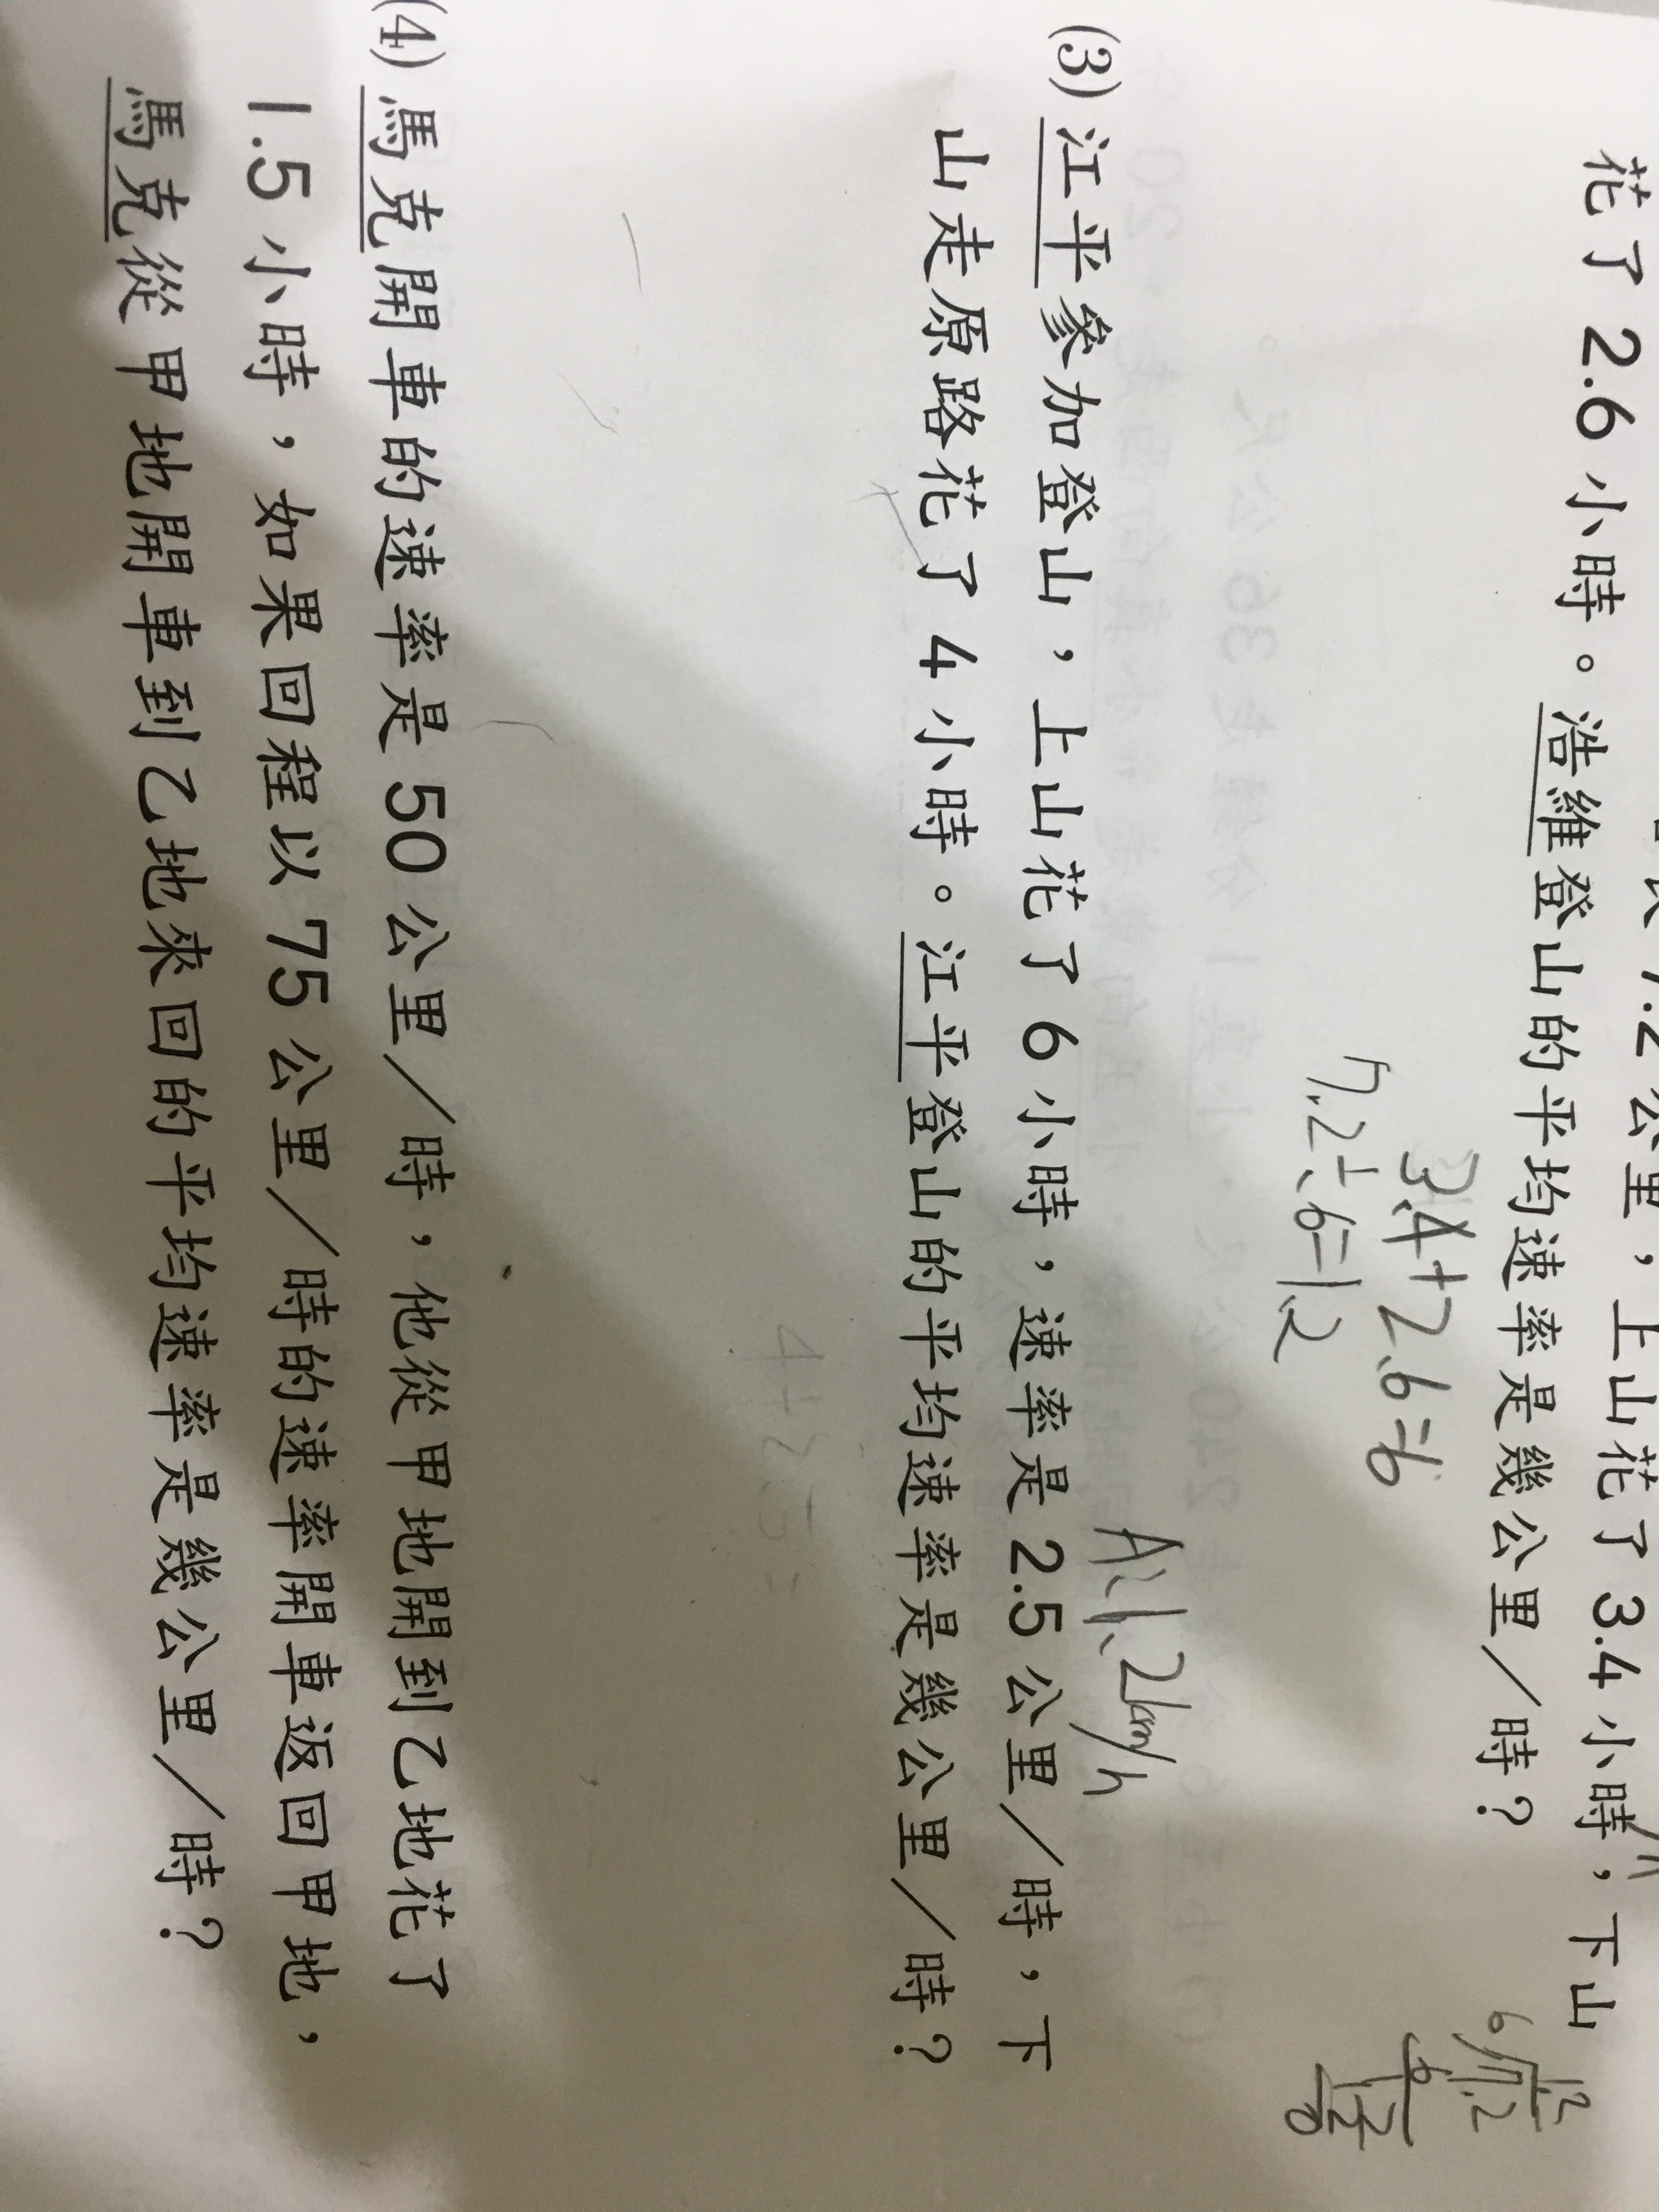 7.2公里，上山花了3.4小時，下山
花了2.6小時。浩維登山的平均速率是幾公里／時？
3.4+2.6=6
7.2÷6=1.2
A:1.2km/h
(3)江平參加登山，上山花了6小時，速率是2.5公里／時，下
山走原路花了4小時。江平登山的平均速率是幾公里／時？
(4)馬克開車的速率是50公里／時，他從甲地開到乙地花了
1.5小時，如果回程以75公里／時的速率開車返回甲地，
馬克從甲地開車到乙地來回的平均速率是幾公里／時？